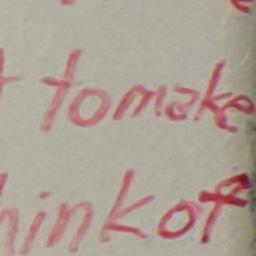 t to make
hink of